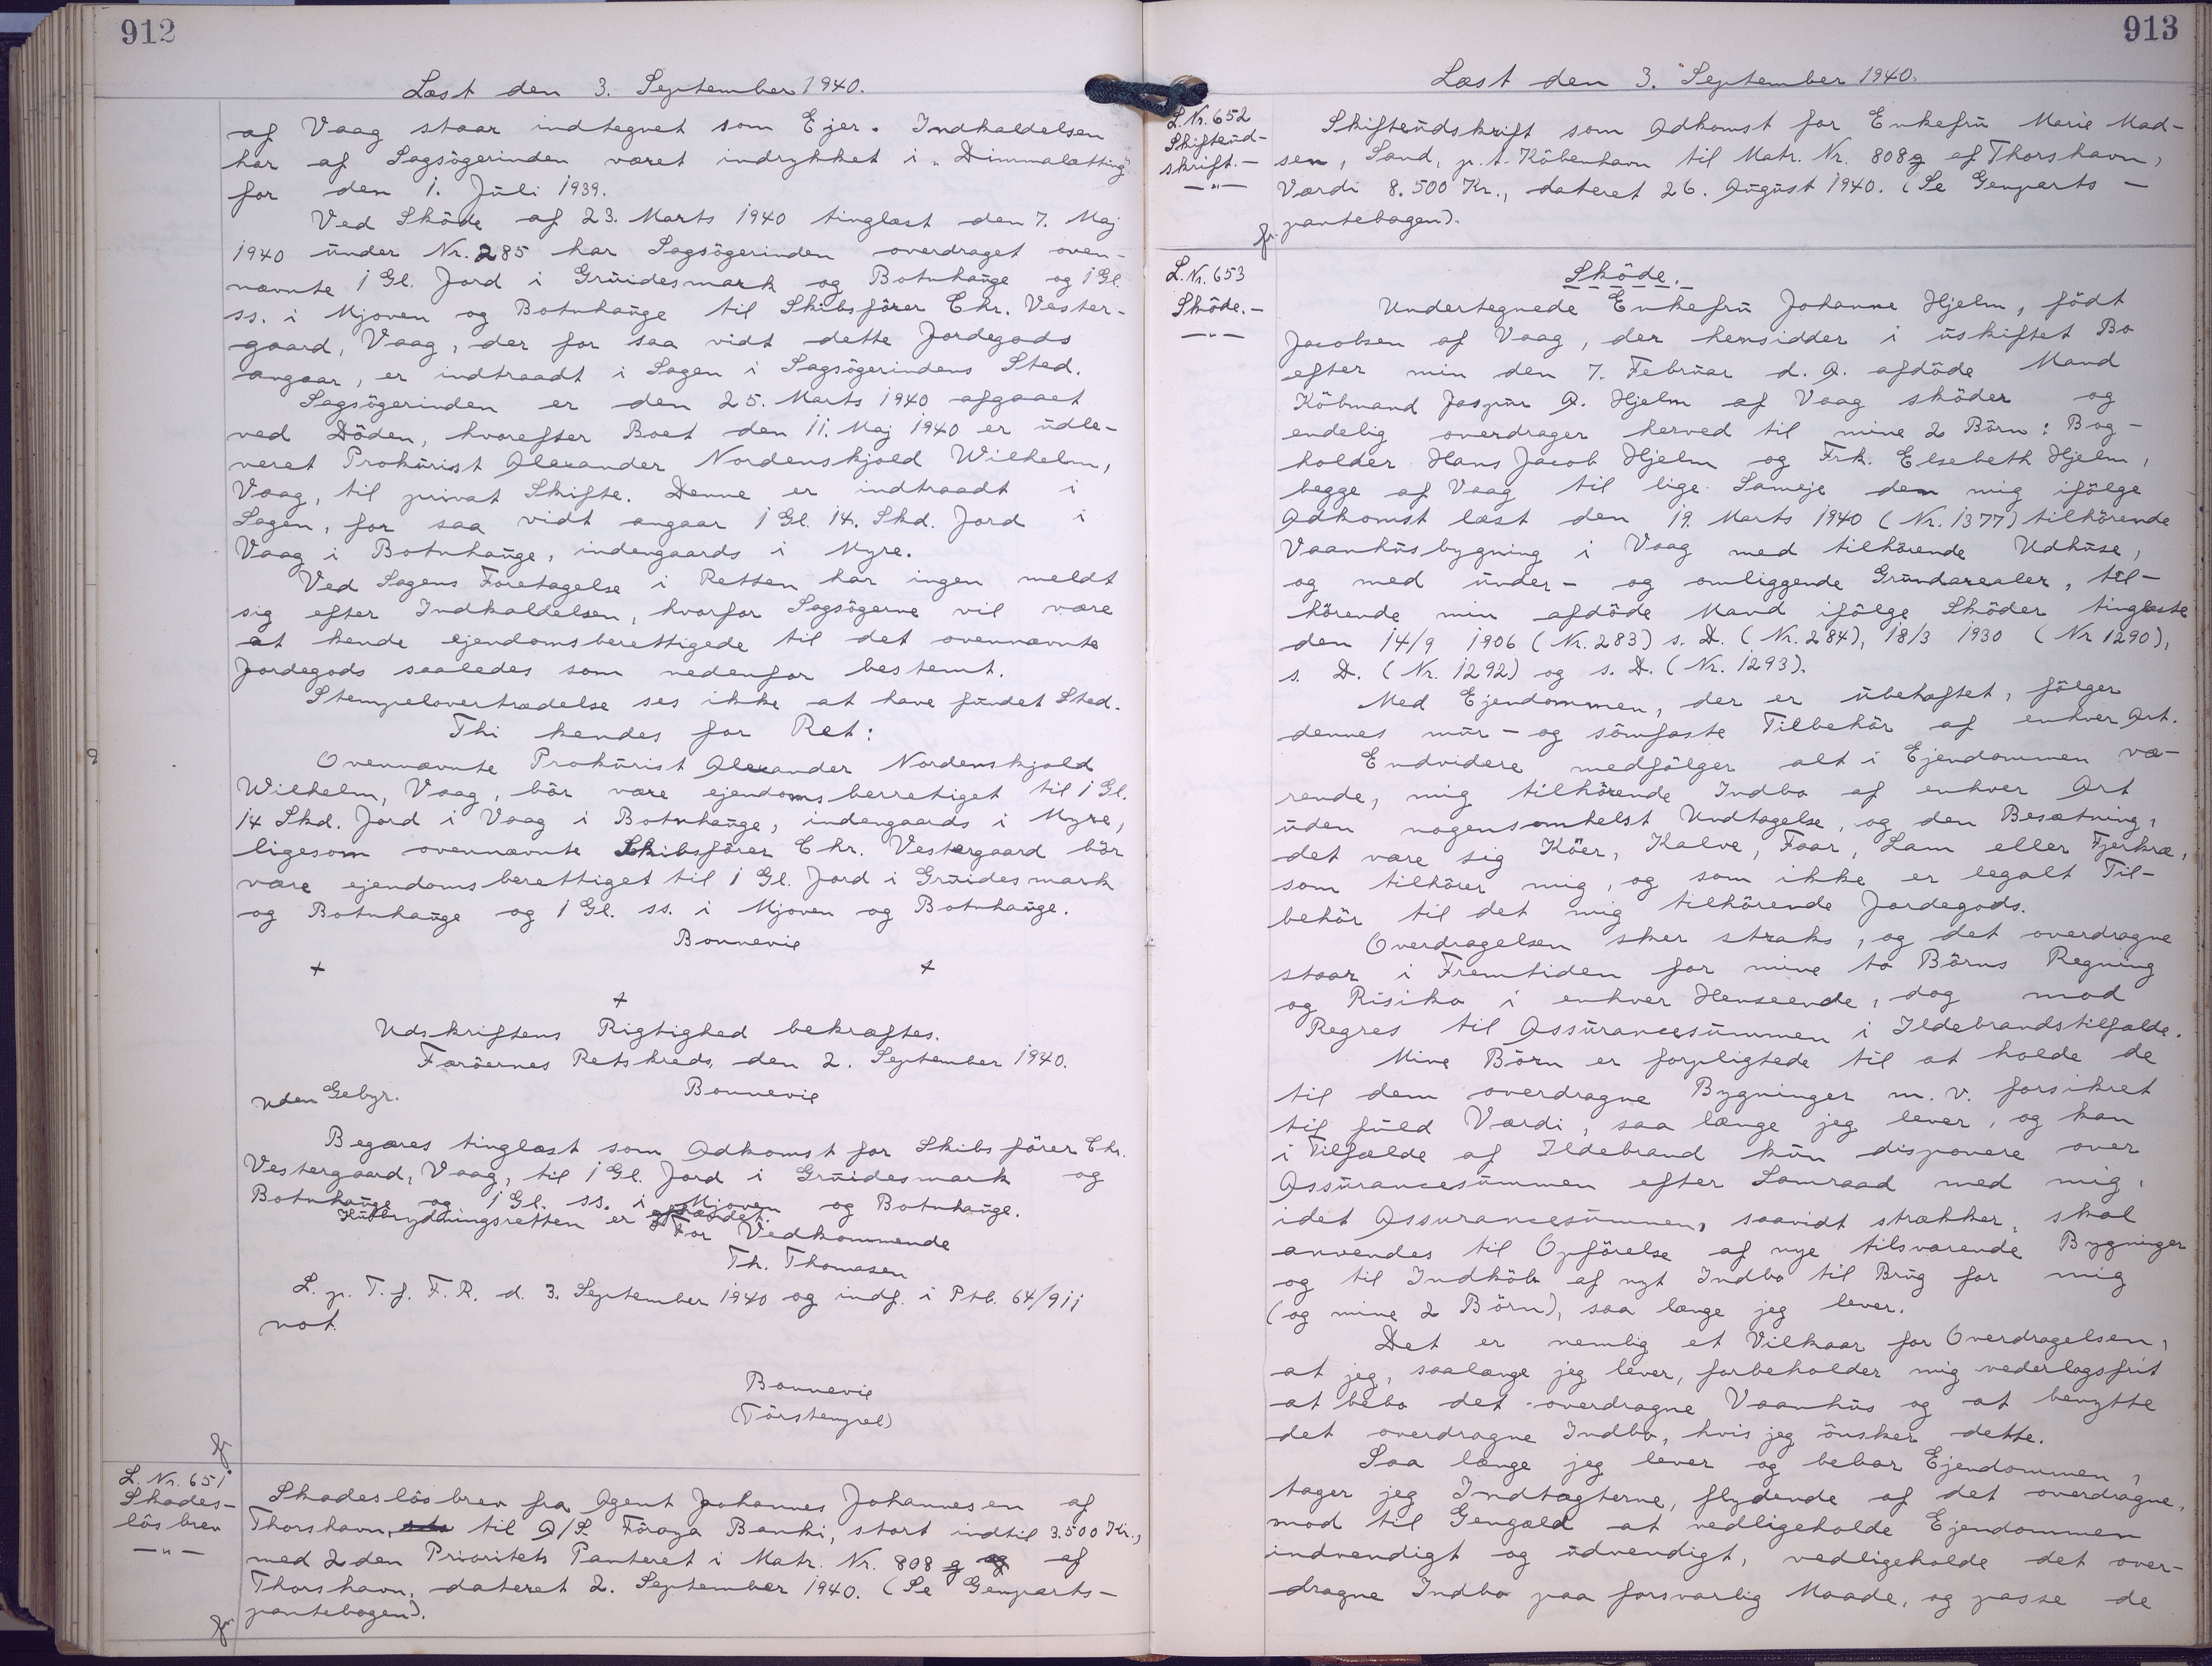 912
Læst den 3. September 1940.
af Vaag staar indtegnet som Ejer. Indkaldelsen
har af Sagsögerinden været indrykket i "Dimmalætting"
for den 1. Juli 1939.
Ved Sköde af 23. Marts 1940 tinglæst den 7. Maj
1940 under Nr. 285 har Sagsögerinden overdraget oven-
nævnte 1 Gl. Jord i Gruidesmark og Botnhauge og 1 Gl.
ss. i Mjoven og Botnhauge til Skibsförer Chr. Vester-
gaard, Vaag, der for saa vidt dette Jordegods
angaar, er indtraadt i Sagen i Sagsögerindens Sted.
Sagsögerinden er den 25. Marts 1940 afgaaet
ved Döden, hvorefter Boet den 11. Maj 1940 er udle-
veret Prokurist Alexander Nordenskjold Wilhelm,
Vaag, til privat Skifte. Denne er indtraadt i
Sagen, for saa vidt angaar 1 Gl. 14. Skd. Jord i
Vaag i Botnhauge, indengaards i Myre.
Ved Sagens Foretagelse i Retten har ingen meldt
sig efter Indkaldelsen, hvorfor Sagsögerne vil være
at kende ejendomsberettigede til det ovennævnte
Jordegods saaledes som nedenfor bestemt.
Stempelovertrædelse ses ikke at have fundet Sted.
Thi kendes for Ret:
Ovennævnte Prokurist Alexander Nordenskjold
Wilhelm, Vaag, bör være ejendomsberretiget til 1 Gl.
14 Skd. Jord i Vaag i Botnhauge, indengaards i Myre,
ligesom ovennævnte Skibsförer Chr. Vestergaard bör
være ejendomsberettiget til 1 Gl. Jord i Gruidesmark
og Botnhauge og 1 Gl. ss. i Mjoven og Botnhauge.
Bonnevie
+ +
+
Udskriftens Rigtighed bekræftes.
Færöernes Retskreds, den 2. September 1940.
Uden Gebyr. Bonnevie
Begæres tinglæst som Adkomst for Skibsförer Chr.
Vestergaard, Vaag, til 1 Gl. Jord i Gruidesmark og
Botnhauge og 1 Gl. ss. i Mjoven og Botnhauge.
Kulbrydningsretten er
For Vedkommende
Th. Thomasen
L. p. T. f. F. R. d. 3. September 1940 og indf. i Ptb. 64/911
not.
Bonnevie
(Törstempel)
L. Nr. 651
Skades-
lös brev
— " —
Skadeslösbrev fra Agent Johannes Johannesen af
Thorshavn, til A/S. Föroya Banki, stort indtil 3.500 Kr.,
med 2den Prioritets Panteret i Matr. Nr. 808 g af
Thorshavn, dateret 2. September 1940. (Se Genparts-
pantebogen).
913
Læst den 3. September 1940.
L. Nr. 652
Skifteud-
skrift. —
— " —
Skifteudskrift som Adkomst for Enkefru Marie Mad-
sen, Sand, p. t. Köbenhavn til Matr. Nr. 808g af Thorshavn,
Værdi 8.500 Kr., dateret 26. August 1940. (Se Genparts —
pantebogen).
L. Nr. 653
Sköde. —
— " —
Sköde.
Undertegnede Enkefru Johanne Hjelm, födt
Jacobsen af Vaag, der hensidder i uskiftet Bo
efter min den 7. Februar d. A. afdöde Mand
Köbmand Jaspur A. Hjelm af Vaag sköder og
endelig overdrager herved til mine 2 Börn: Bog-
holder Hans Jacob Hjelm og Frk. Elsebeth Hjelm,
begge af Vaag til lige Sameje den mig ifölge
Adkomst læst den 19. Marts 1940 (Nr. 1377) tilhörende
Vaanhusbygning i Vaag med tilhörende Udhuse,
og med under- og omliggende Grundarealer, til-
hörende min afdöde Mand ifölge Sköder tinglæste
den 14/9 1906 (Nr. 283) s. D. (Nr. 284), 18/3 1930 (Nr 1290),
s. D. (Nr. 1292) og s. D. (Nr. 1293).
Med Ejendommen, der er ubehæftet, fölger
dennes mur- og sömfaste Tilbehör af enhver Art.
Endvidere medfölger alt i Ejendommen væ-
rende, mig tilhörende Indbo af enhver Art
uden nogensomhelst Undtagelse, og den Besætning,
det være sig Köer, Kalve, Faar, Lam eller Fjerkræ,
som tilhörer mig, og som ikke er legalt Til-
behör til det mig tilhörende Jordegods.
Overdragelsen sker straks, og det overdragne
staar i Fremtiden for mine to Börns Regning
og Risiko i enhver Henseende, dog mod
Regres til Assurancesummen i Ildebrandstilfælde.
Mine Börn er forpligtede til at holde de
til dem overdragne Bygninger m. v. forsikret
til fuld Værdi, saa længe jeg lever, og kan
i Tilfælde af Ildebrand kun disponere over
Assurancesummen efter Samraad med mig,
idet Assurancesummen, saavidt strækker, skal
anvendes til Opförelse af nye tilsvarende Bygninger
og til Indköb af nyt Indbo til Brug for mig
(og mine 2 Börn), saa længe jeg lever.
Det er nemlig et Vilkaar for Overdragelsen,
at jeg, saalænge jeg lever, forbeholder mig vederlagsfrit
at bebo det overdragne Vaanhus og at benytte
det overdragne Indbo, hvis jeg önsker dette.
Saa længe jeg lever og bebor Ejendommen,
tager jeg Indtægterne, flydende af det overdragne,
mod til Gengæld at vedligeholde Ejendommen
indvendigt og udvendigt, vedligeholde det over-
dragne Indbo paa forsvarlig Maade, og passe de